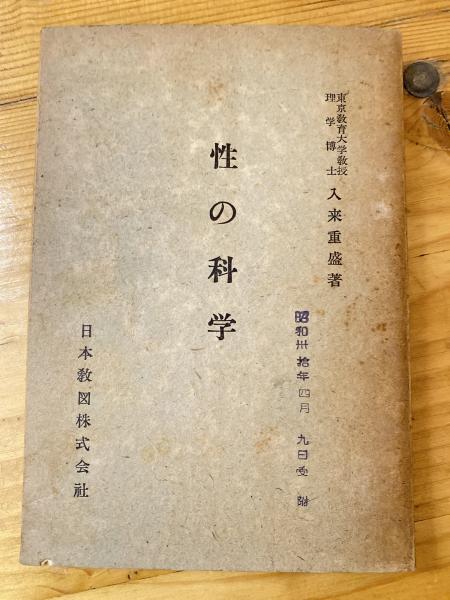 東京教育大学教授
理学博士
入来重盛著
性の科学
昭和卅拾年四月九日受附
日本教図株式会社